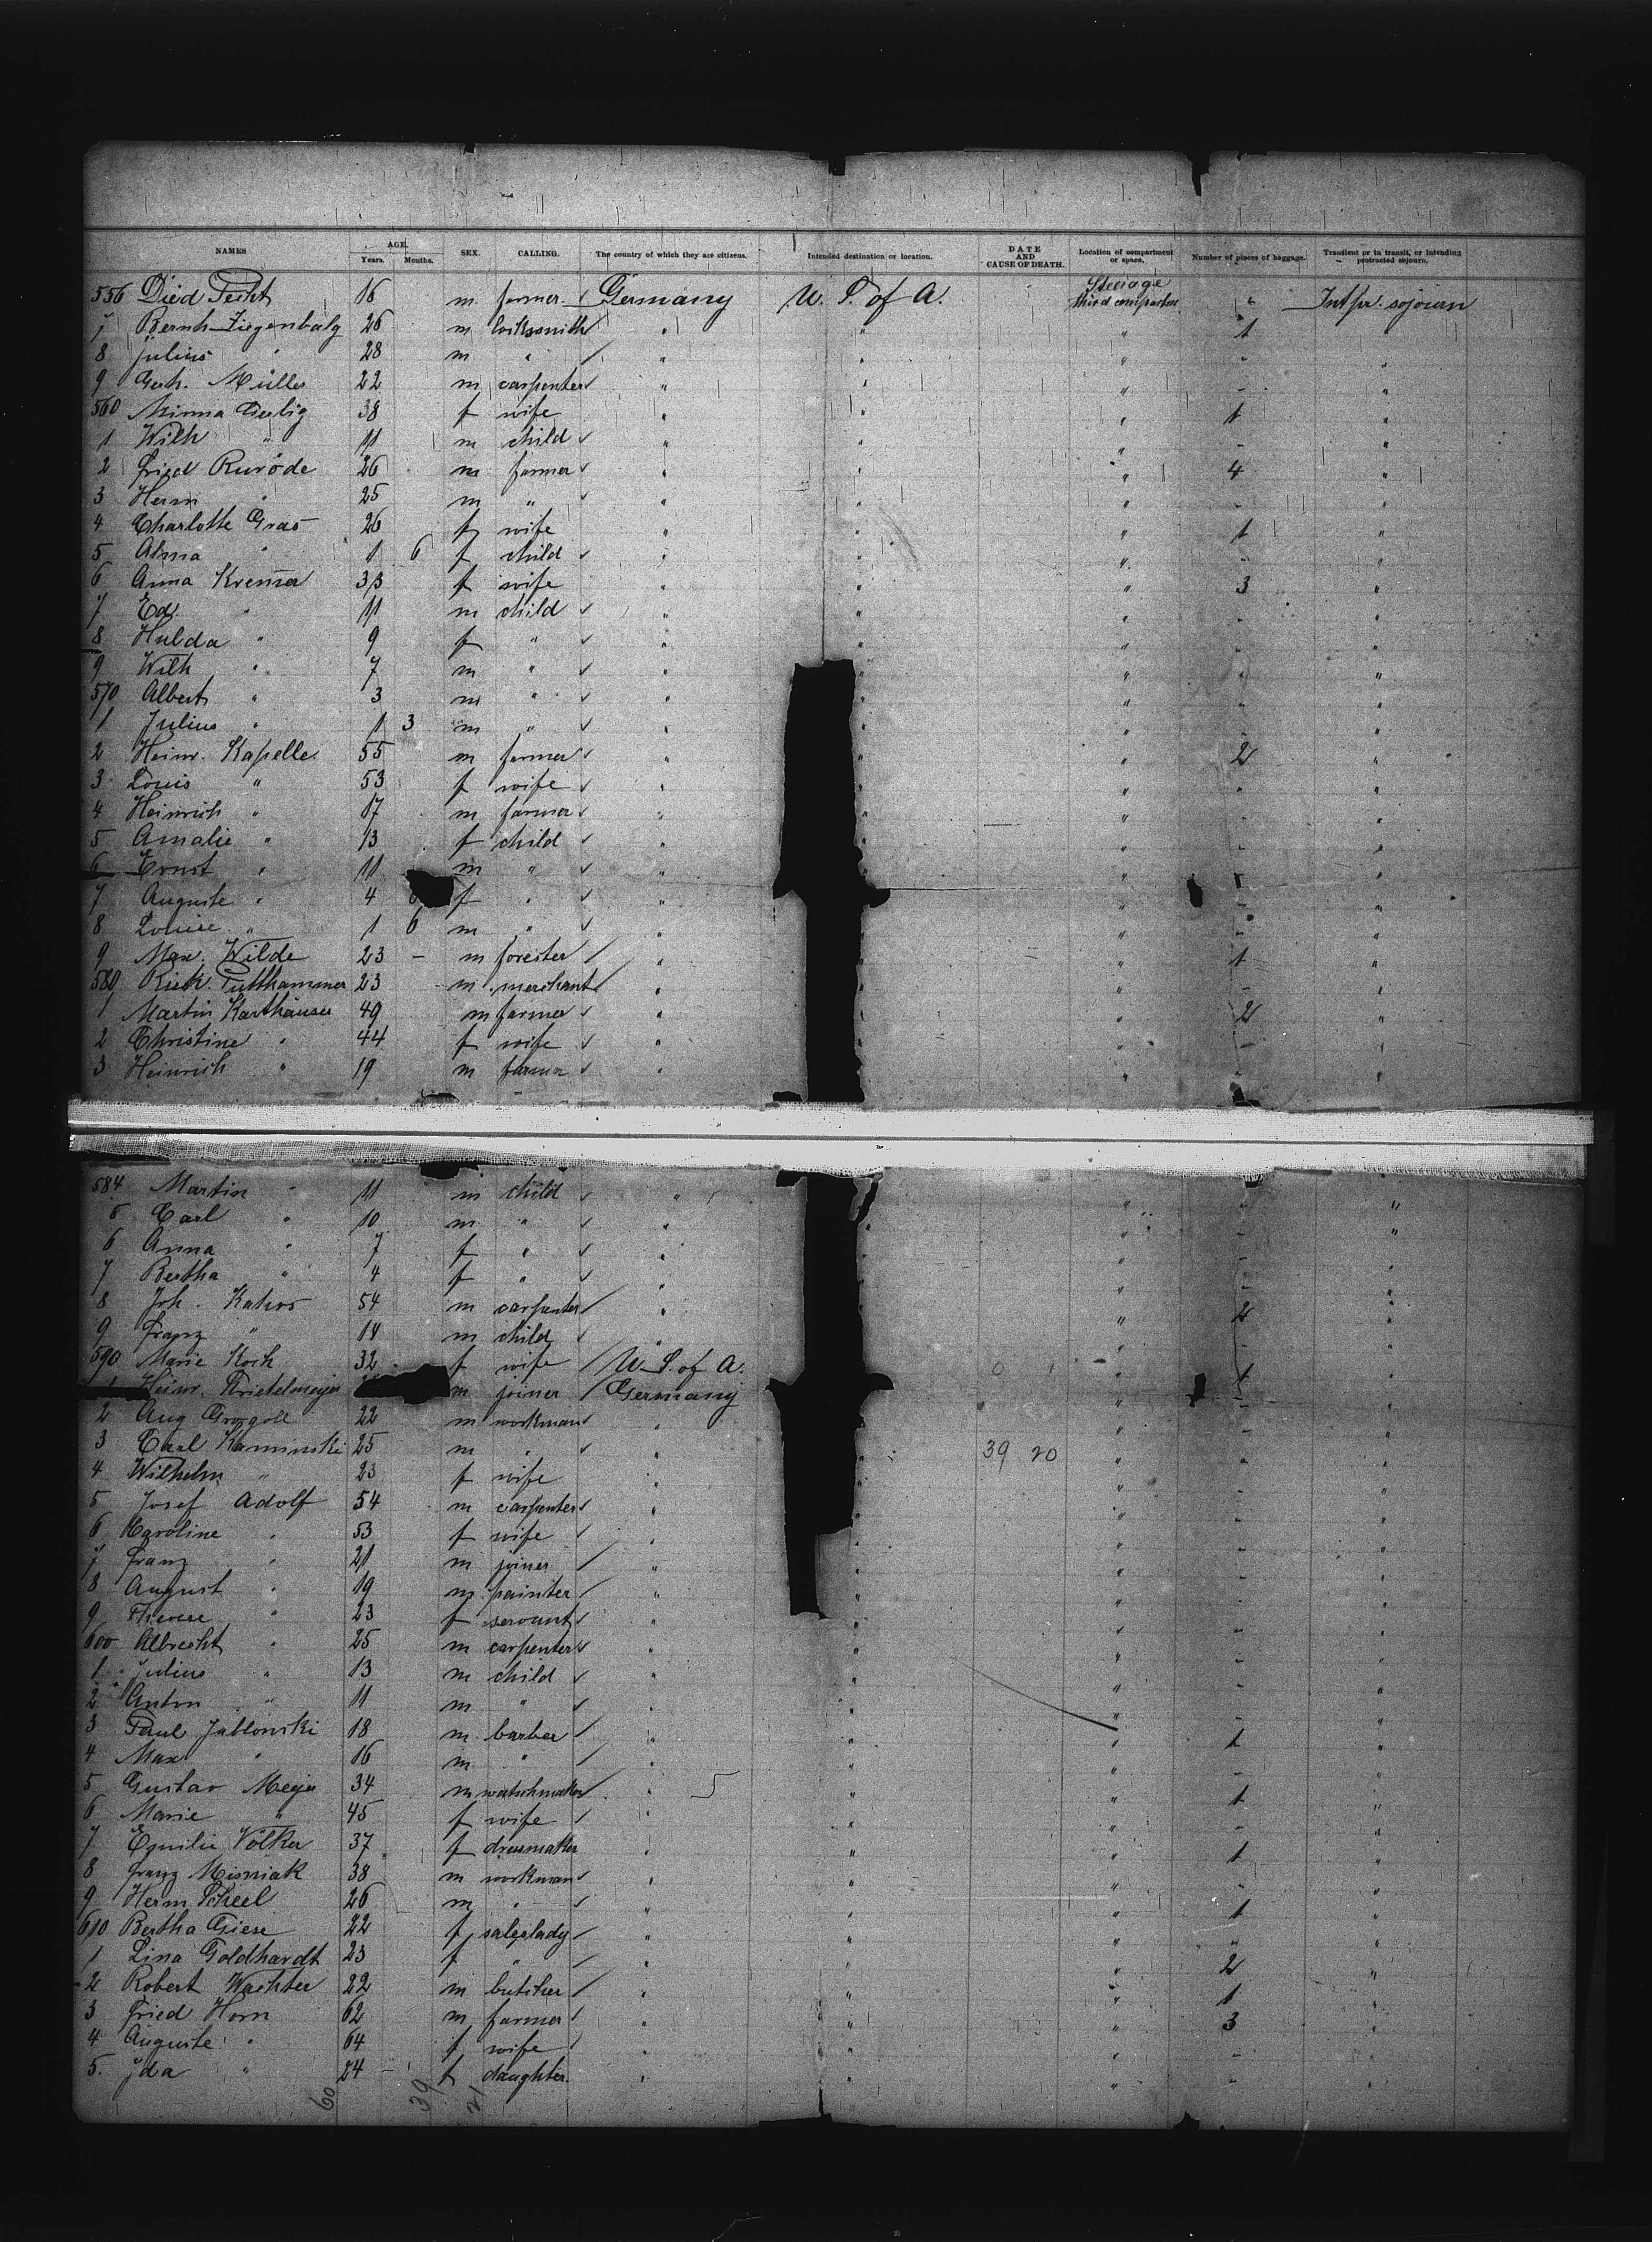 NAMES AGE. Years. Months. SEX. CALLING. The country of which they are citizens. Intended destination or location. DATE AND CAUSE OF DEATH. Location of compartment or space. Number of pieces of baggage. Transient or in transit, or intending protracted sojourn.
556 Died Fecht 16 m farmer Germany U. S. of A. Steerage third compartm " Int pr. sojourn
7 Bernh Ziegenbalg 26 m locksmith " " " 1
8 Julius " 28 m " " " " - "
9 Gerh. Müller 22 m carpenter " " " - "
560 Minna Gerlig 38 f wife " " " 1 "
1 Wilh " 11 m child " " " - "
2 Fried Rurode 26 m farmer " " " 4 "
3 Herm " 25 m " " " " - "
4 Charlotte Gras 26 f wife " " " 1 "
5 Alma " 1 6 f child " " " - "
6 Anna Kremer 33 f wife " " " 3 "
7 Ed. " 11 m child " " " - "
8 Hulda " 9 f " " " " - "
9 Wilh " 7 m " " " " "
570 Albert " 3 m " " " " "
1 Julius " 1 3 m " " " - "
2 Heinr. Kapelle 55 m farmer " " 2 "
3 Louis " 53 f wife " " " "
4 Heinrich " 17 m farmer " " - "
5 Amalie " 13 f child " " - "
6 Ernst " 11 m " " " "
7 Auguste " 4 f " " " - "
8 Louise " 1 6 m " " " - "
9 Max Wilde 23 - m forester " " 1 "
580 Rich. Putthammer 23 m merchant " " - "
1 Martin Karthäuser 49 m farmer " " 2 "
2 Christine " 44 f wife " " - "
3 Heinrich " 19 m farmer " " "
584 Martin " 11 m child " " " "
5 Carl " 10 m " " " - "
6 Anna " 7 f " " " -
7 Bertha " 4 f " " " - "
8 Joh. Kahos 54 m carpenter " " 2 "
9 Franz " 14 m child " " - "
590 Marie Koch 32 f wife U. S. of A. " 1 "
Heinr. Krietelmeyer m joiner Germany " - "
2 Aug Grogoll 22 m workman " " - "
3 Carl Kaminski 25 m " " 39 20 " - "
4 Wilhelm " 23 f wife " " - "
5 Josef Adolf 54 m carpenter " " - "
6 Karoline " 53 f wife " " - "
7 Franz " 21 m joiner " " " - "
8 August " 19 m painter " " - "
9 Therese " 23 f servant " " " - "
600 Albrecht " 25 m carpenter " " " - "
1 Julius " 13 m child " " " - "
2 Anton " 11 m " " " - "
3 Paul Jablonski 18 m barber " " " 1 "
4 Max " 16 m " " " " - "
5 Gustav Meyer 34 m watchmaker " 5 " " 1 "
6 Marie " 45 f wife " " " - "
7 Emilie Völker 37 f dressmaker " " " 1 "
8 Franz Misniak 38 m workman " " " - "
9 Herm. Scheel 26 m " " " " 1 "
610 Bertha Giese 22 f saleslady " " " " "
1 Lina Goldhardt 23 f " " " " 2 "
2 Robert Wachter 22 m butcher " " " 1 "
3 Fried Horn 62 m farmer " " " 3 "
4 Auguste " 64 f wife " " " - "
5. Jda " 24 - f daughter. " " " - "
60 39 21